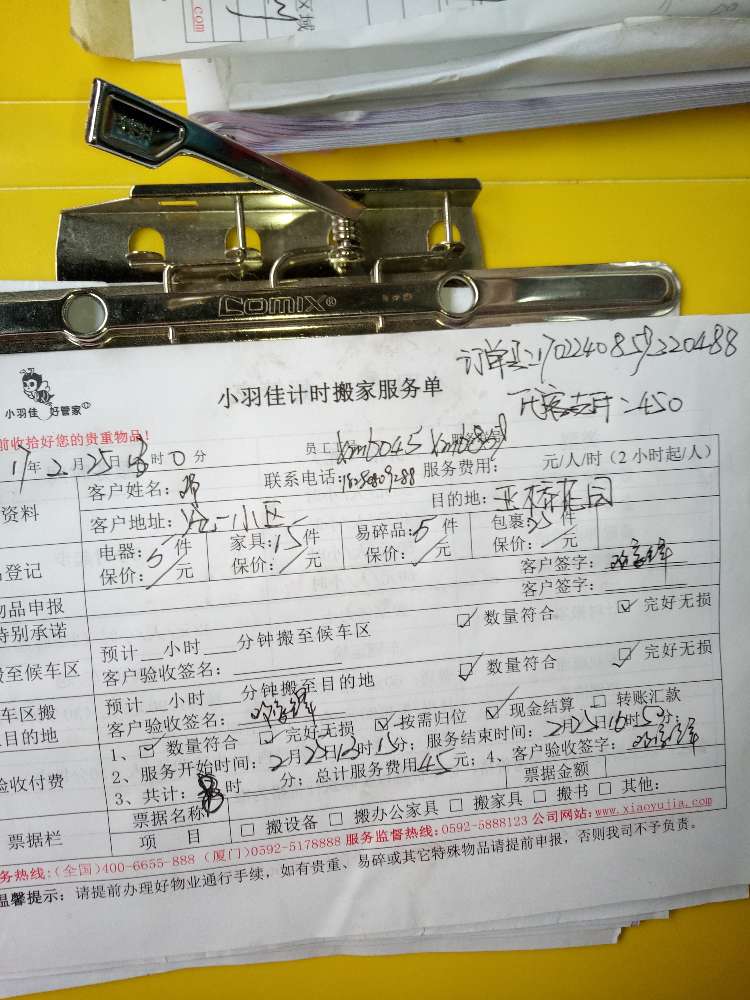 .com
区域
COMIX®
订单号:170224085920488
小羽佳 好管家
小羽佳计时搬家服务单
=450
前收拾好您的贵重物品!
17年2月25日 时0分
员工 xm6045
服务费用: 元/人/时(2小时起/人)
资料
客户姓名:
联系电话:
客户地址: 小区
目的地:
登记
电器:5件
家具:15件
易碎品:5件
包裹:25件
保价:/元
保价:/元
保价:/元
保价:/元
物品申报
客户签字:
特别承诺
客户签字:
搬至候车区
预计 小时 分钟搬至候车区
☑ 数量符合 ☑ 完好无损
客户验收签名:
车区搬
目的地
预计 小时 分钟搬至目的地
☑ 数量符合 ☑ 完好无损
客户验收签名:
验收付费
1、☑ 数量符合 ☑ 完好无损 ☑ 按需归位 ☑ 现金结算 □ 转账汇款
2、服务开始时间:2月25日13时15分;服务结束时间:2月25日16时 分;
3、共计: 时 分;总计服务费用45元;4、客户验收签字:
票据栏
票据名称
票据金额
项 目
□ 搬设备 □ 搬办公家具 □ 搬家具 □ 搬书 □ 其他:
务热线:(全国)400-6655-888 (厦门)0592-5178888 服务监督热线:0592-5888123 公司网站:www.xiaoyujia.com
温馨提示:请提前办理好物业通行手续,如有贵重、易碎或其它特殊物品请提前申报,否则我司不予负责。